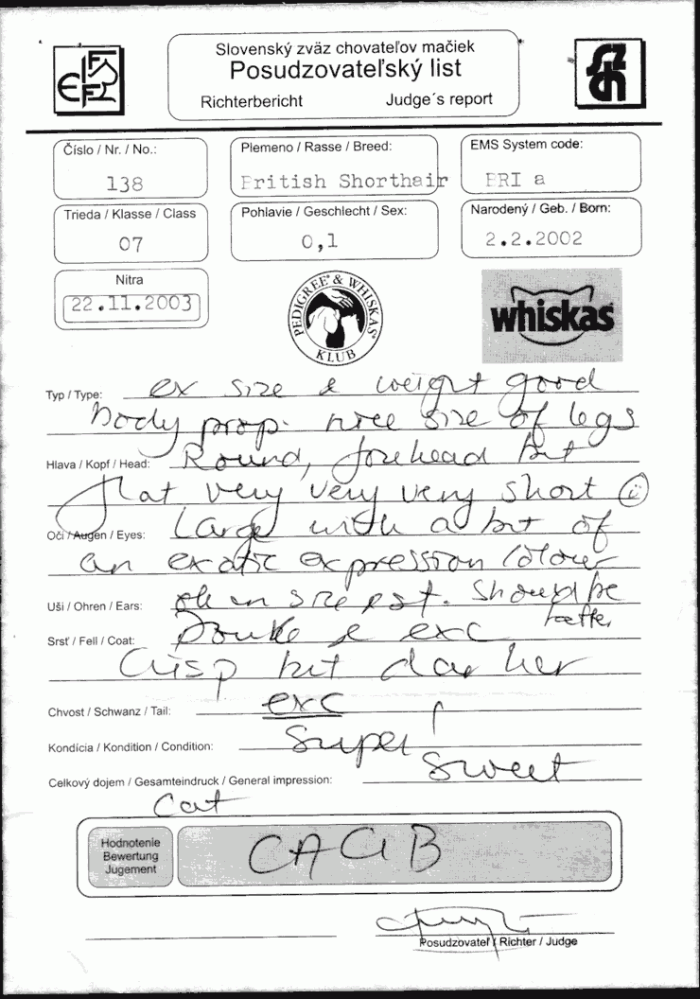 Slovenský zväz chovateľov mačiek
Posudzovateľský list
Richterbericht Judge´s report
FIFe
SZCH
Číslo / Nr. / No.: 138
Plemeno / Rasse / Breed: British Shorthair
EMS System code: BRI a
Trieda / Klasse / Class 07
Pohlavie / Geschlecht / Sex: 0,1
Narodený / Geb. / Born: 2.2.2002
Nitra
22.11.2003
PEDIGREE® & WHISKAS® KLUB
whiskas
Typ / Type: ex size & weight good
body prop. nice size of legs
Hlava / Kopf / Head: Round, forehead but
flat very very very short
Oči / Augen / Eyes: Large with a bit of
an exotic expression colour
Uši / Ohren / Ears: ok in size Should be
better
Srsť / Fell / Coat: & exc
Crisp but darker
Chvost / Schwanz / Tail: exc
Kondícia / Kondition / Condition: Super
Celkový dojem / Gesamteindruck / General impression: Sweet
Cat
Hodnotenie
Bewertung
Jugement
CACIB
Posudzovateľ / Richter / Judge